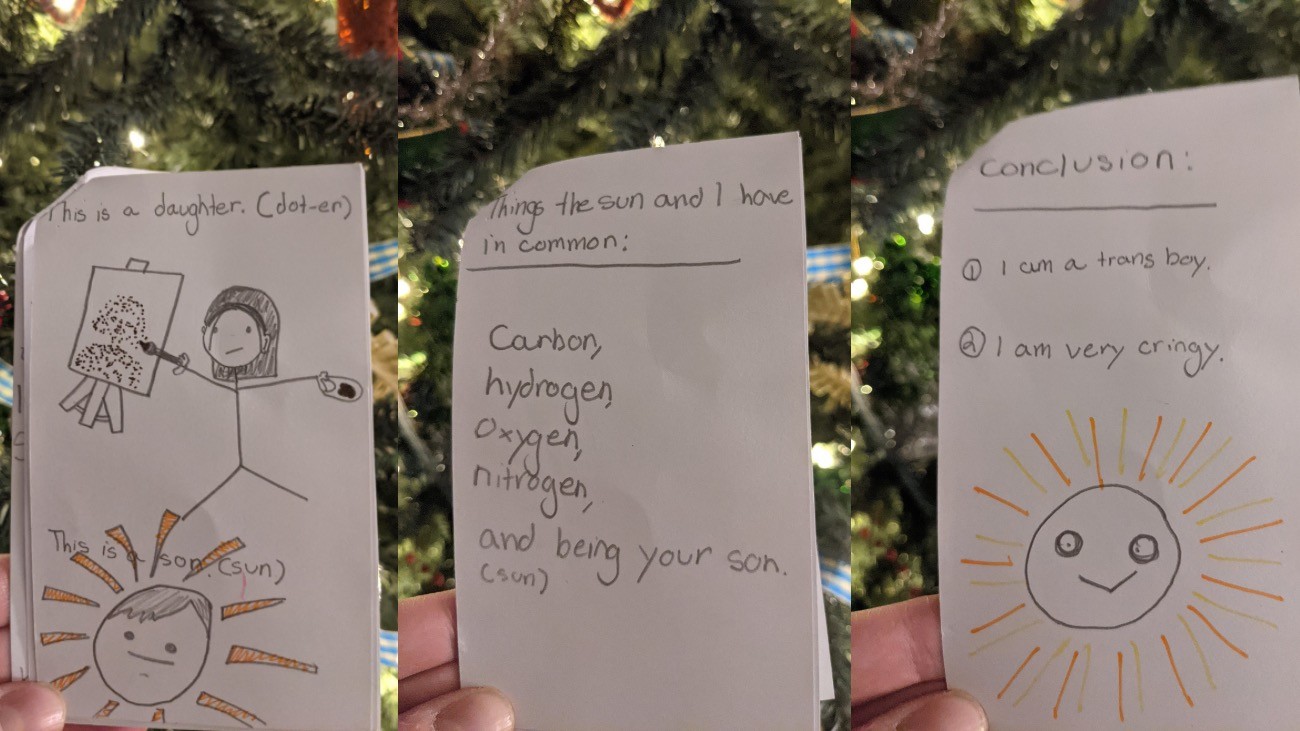 This is a daughter. (dot-er)
This is a son. (sun)
Things the sun and I have
in common:
Carbon,
hydrogen,
Oxygen,
nitrogen,
and being your son.
(sun)
Conclusion:
① I am a trans boy.
② I am very cringy.